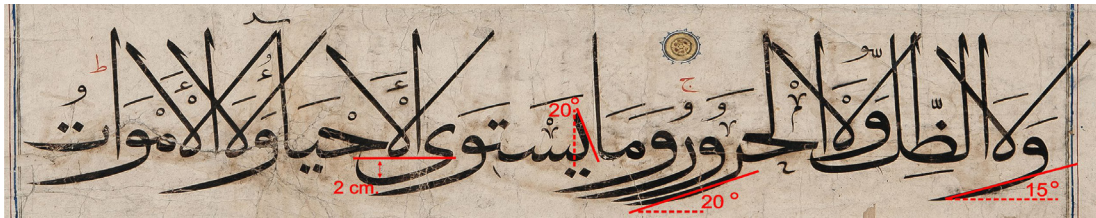 ولا الظل ولا الحرور وما يستوى الأحياء ولا الأموات
ط ج
20°
2 cm.
20 °
15°